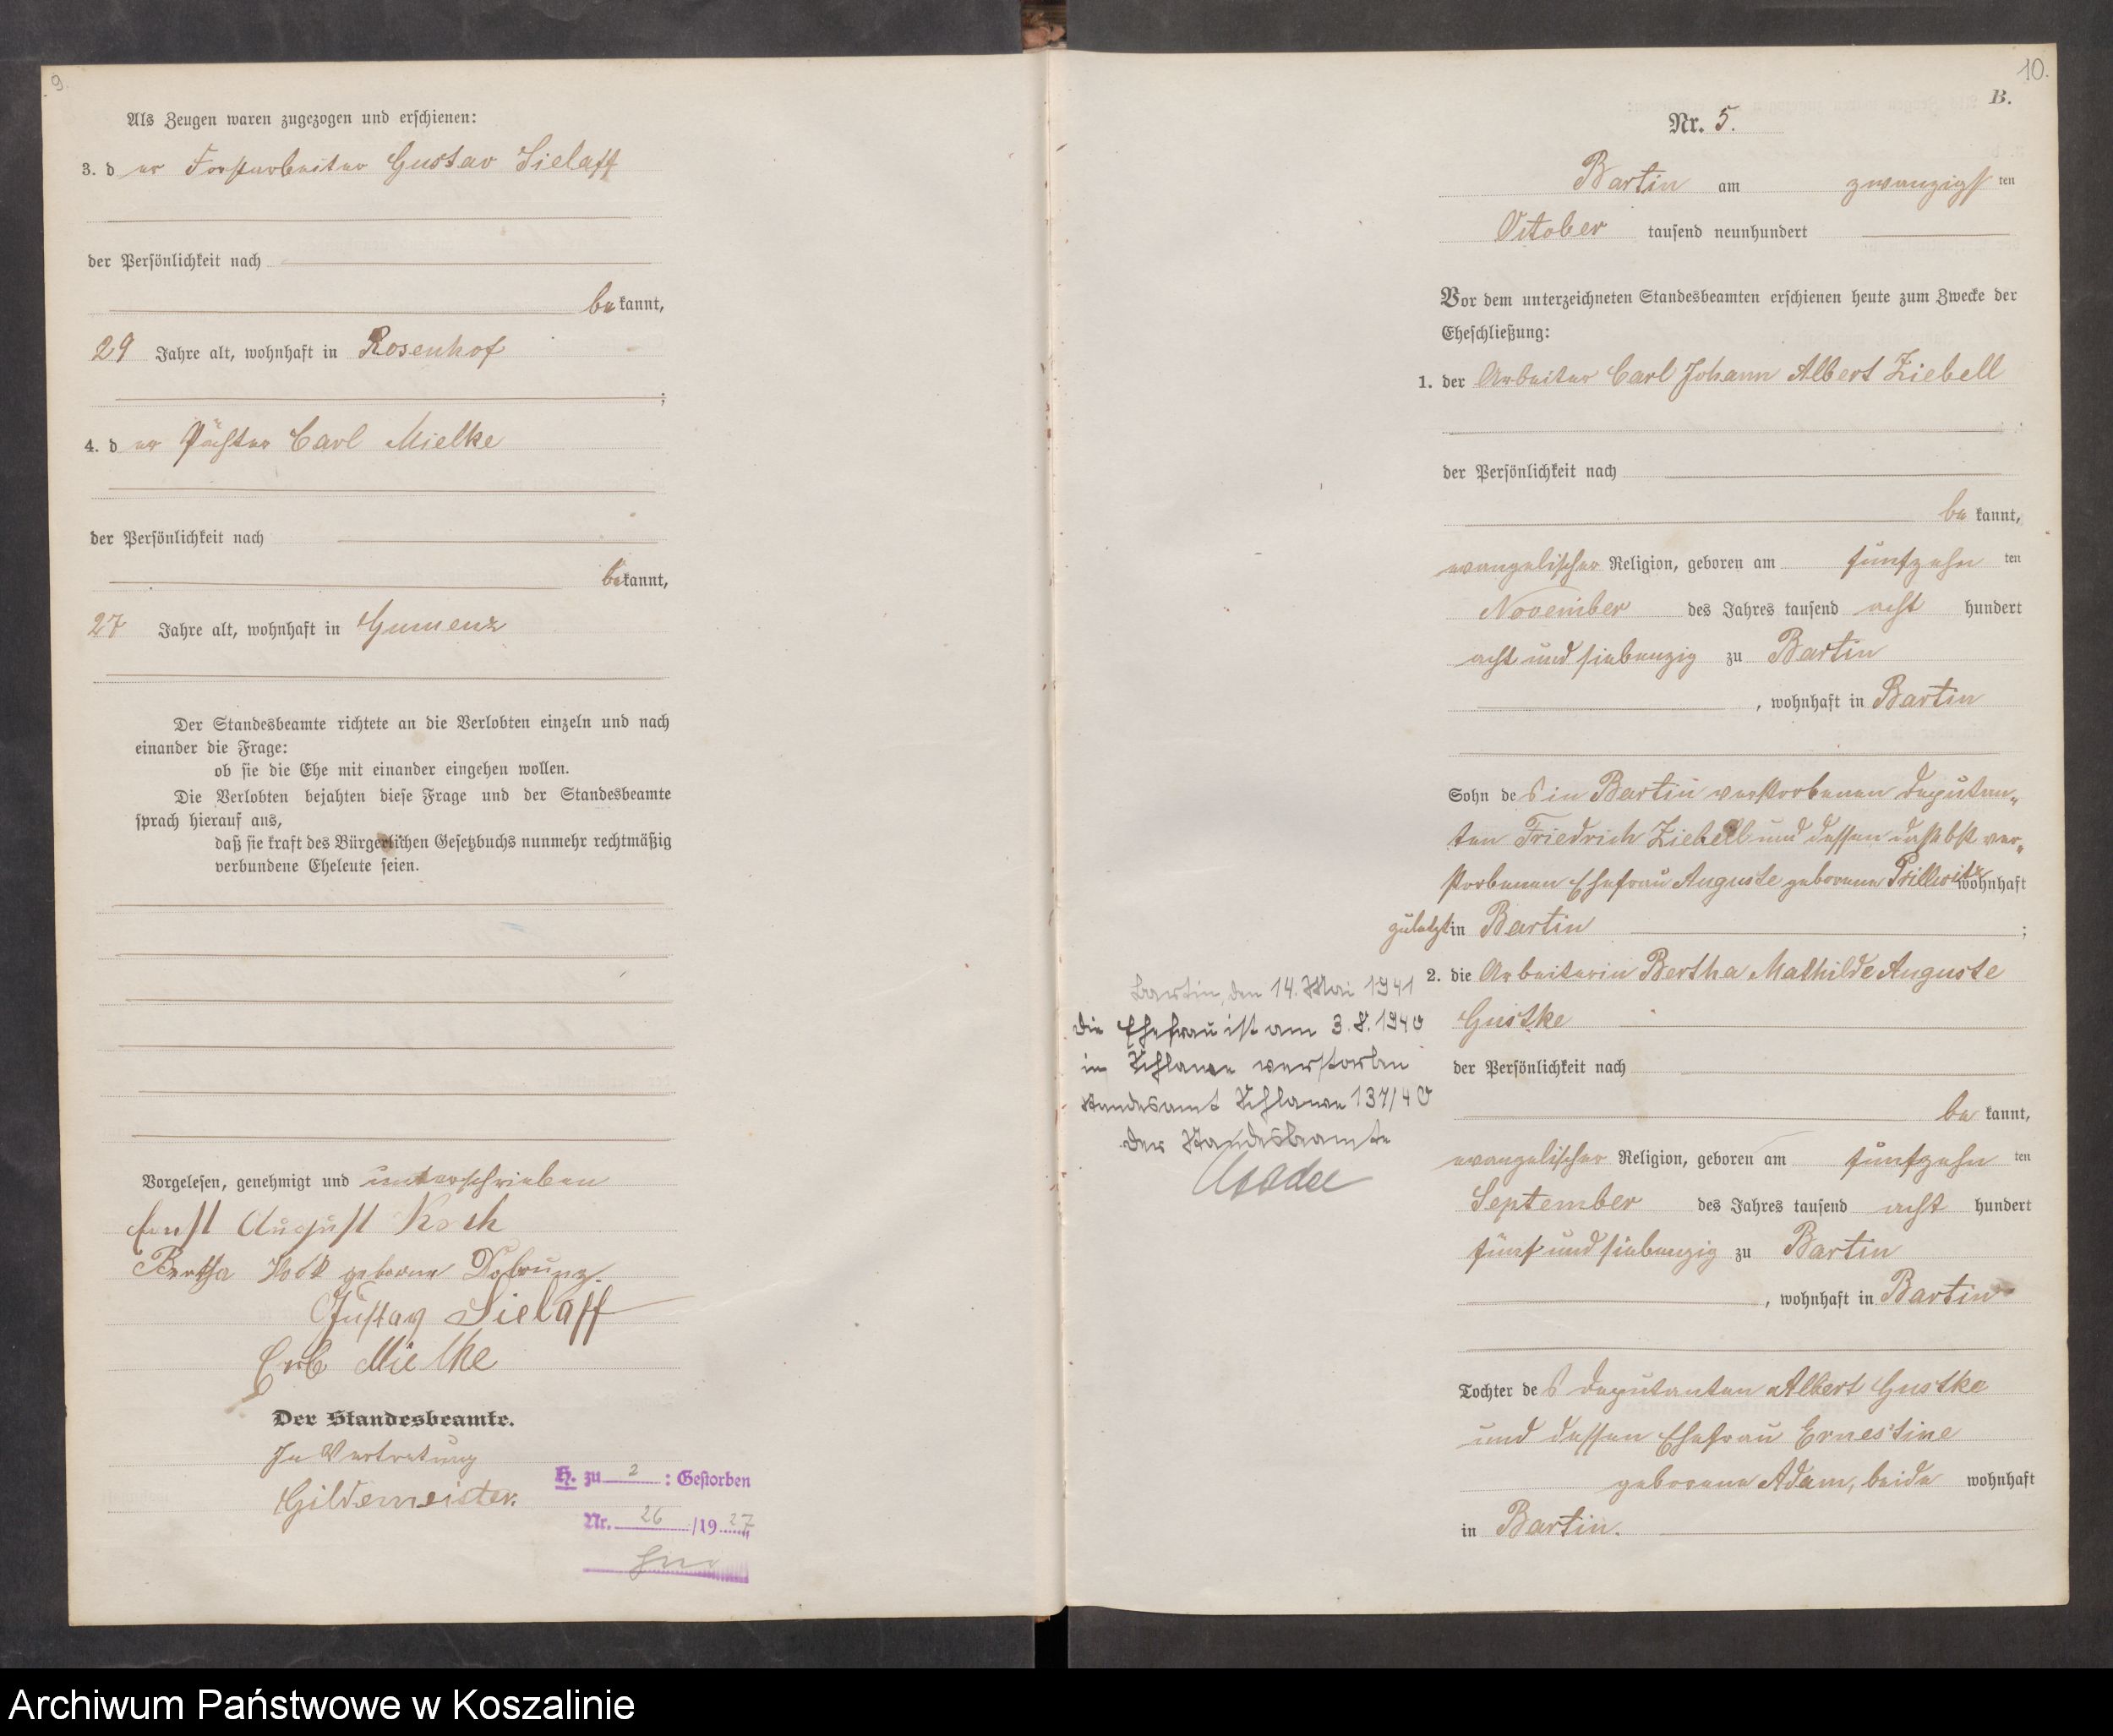 9.
Als Zeugen waren zugezogen und erschienen:
3. d er Forstarbeiter Gustav Sielaff
der Persönlichkeit nach
be kannt,
29 Jahre alt, wohnhaft in Rosenhof
;
4. d er Pächter Carl Mielke
der Persönlichkeit nach
bekannt,
27 Jahre alt, wohnhaft in Gumenz
Der Standesbeamte richtete an die Verlobten einzeln und nach
einander die Frage:
ob sie die Ehe mit einander eingehen wollen.
Die Verlobten bejahten diese Frage und der Standesbeamte
sprach hierauf aus,
daß sie kraft des Bürgerlichen Gesetzbuchs nunmehr rechtmäßig
verbundene Eheleute seien.
Vorgelesen, genehmigt und unterschrieben
Ernst August Kock
Bertha Kock geborene Dobrunz.
Gustav Sielaff
Carl Mielke
Der Standesbeamte.
In Vertretung
Gildemeister.
H. zu 2 : Gestorben
Nr. 26 /19 27
10.
B.
Nr. 5.
Bartin am zwanzigsten
October tausend neunhundert
Vor dem unterzeichneten Standesbeamten erschienen heute zum Zwecke der
Eheschließung:
1. der Arbeiter Carl Johann Albert Ziebell
der Persönlichkeit nach
be kannt,
evangelischer Religion, geboren am fünfzehn ten
November des Jahres tausend acht hundert
acht und siebenzig zu Bartin
, wohnhaft in Bartin
Sohn des in Bartin verstorbenen Deputan„
ten Friedrich Ziebell und dessen daselbst ver„
storbenen Ehefrau Auguste geborene Prillwitz wohnhaft
zuletzt in Bartin ;
2. die Arbeiterin Bertha Mathilde Auguste
Gustke
der Persönlichkeit nach
be kannt,
evangelischer Religion, geboren am fünfzehn ten
September des Jahres tausend acht hundert
fünf und siebenzig zu Bartin
, wohnhaft in Bartin
Tochter des Deputanten Albert Gustke
und dessen Ehefrau Ernestine
geborene Adam, beide wohnhaft
in Bartin.
Bartin, den 14. Mai 1941
Die Ehefrau ist am 3.8.1940
in Schlawe verstorben
Standesamt Schlawe 137/40
Der Standesbeamte
Archiwum Państwowe w Koszalinie